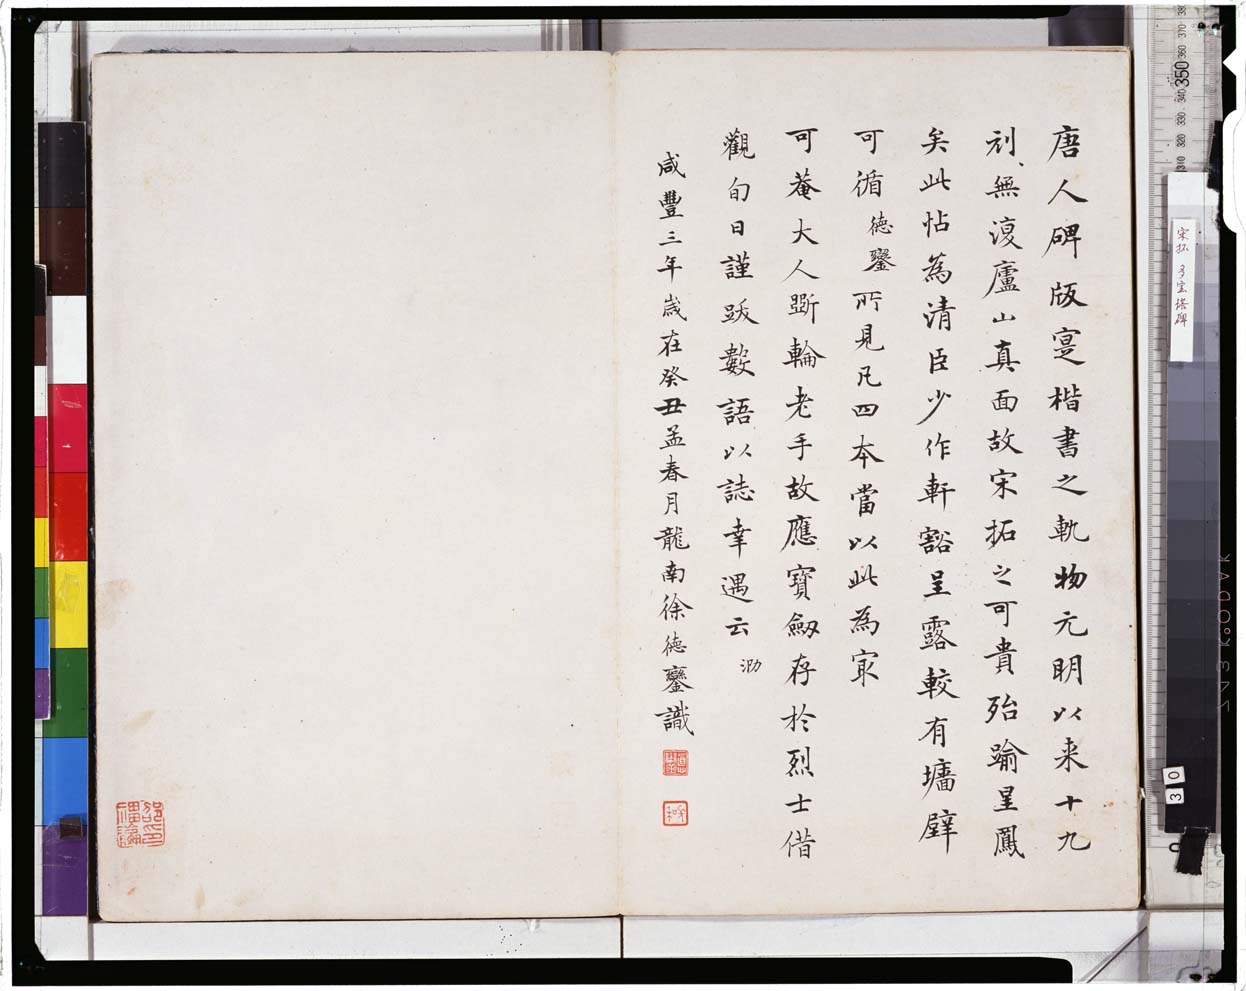 唐人碑版寔楷書之軌物元明以来十九
刓無復廬山真面故宋拓之可貴殆踰星鳳
矣此帖為清臣少作軒豁呈露較有墻壁
可循德鑾所見凡四本當以此為冣
可菴大人斲輪老手故應寶劒存於烈士借
觀旬日謹跋數語以誌幸遇云 泐
咸豐三年歲在癸丑孟春月龍南徐德鑾識
宋拓 多宝塔碑
350
30
KODAK